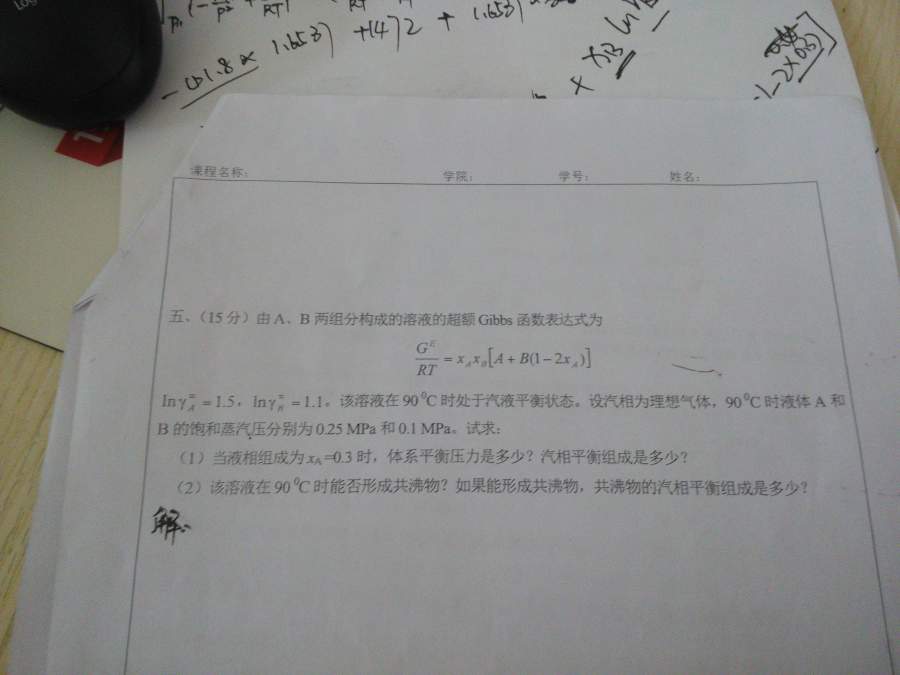 Log
-51.8 × 1.6537 + 1472 + 1.6537
× xB ln
1-2×0.3)]
课程名称: 学院: 学号: 姓名:
五、(15 分)由 A、B 两组分构成的溶液的超额 Gibbs 函数表达式为
G^E/RT = x_A x_B[A + B(1-2x_A)]
lnγ_A^∞ =1.5, lnγ_B^∞ =1.1。该溶液在 90 ⁰C 时处于汽液平衡状态。设汽相为理想气体，90 ⁰C 时液体 A 和
B 的饱和蒸汽压分别为 0.25 MPa 和 0.1 MPa。试求：
（1）当液相组成为 x_A=0.3 时，体系平衡压力是多少？汽相平衡组成是多少？
（2）该溶液在 90 ⁰C 时能否形成共沸物？如果能形成共沸物，共沸物的汽相平衡组成是多少？
解: